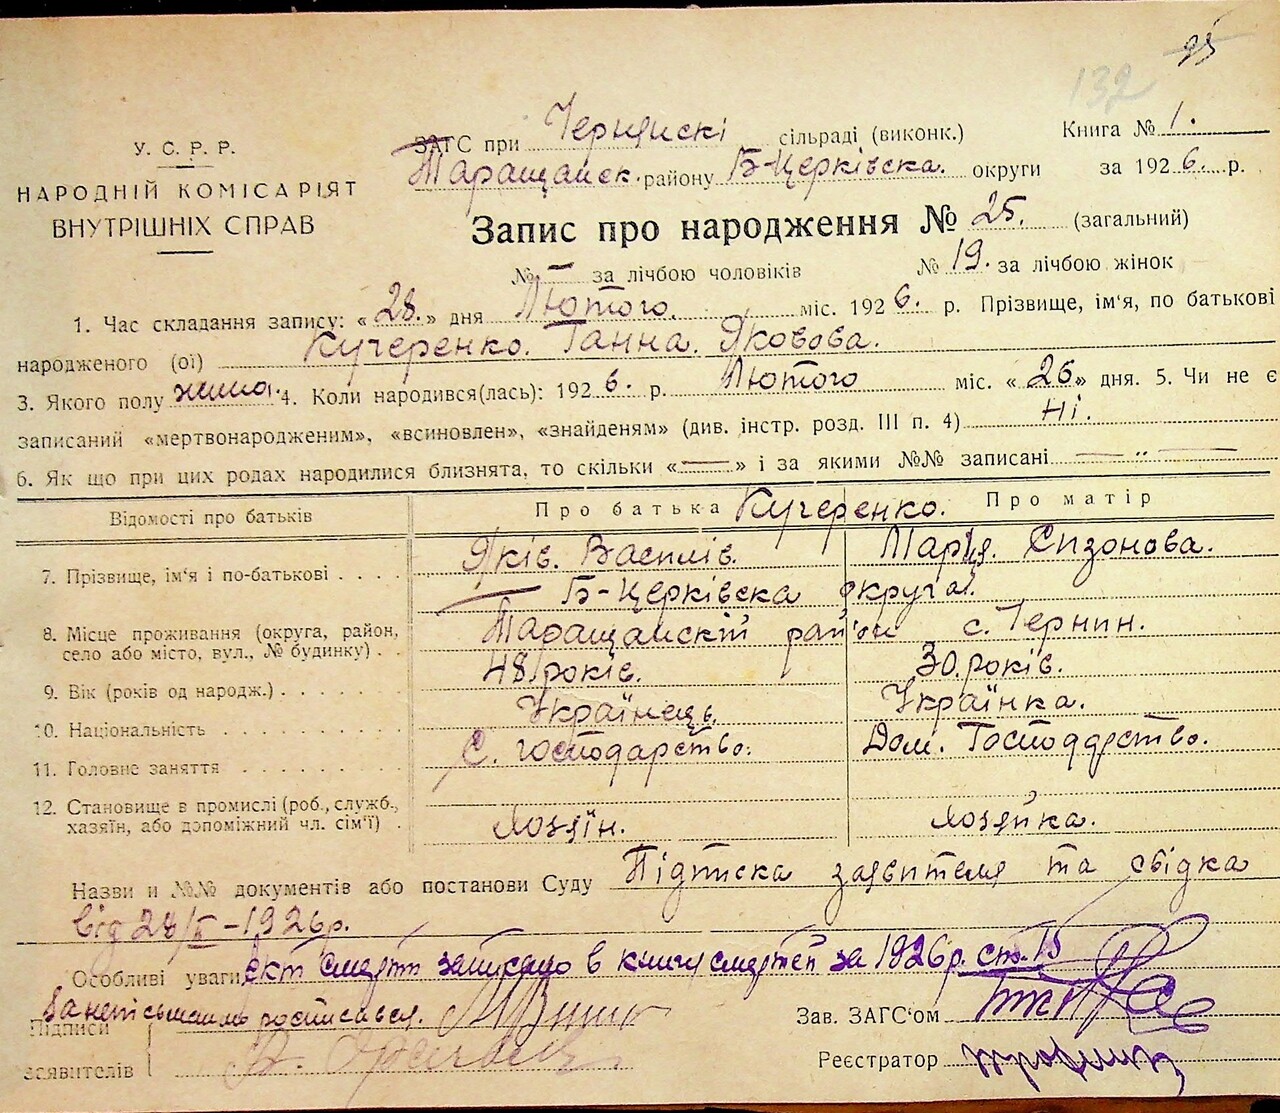 95
132
У. С. Р. Р.
НАРОДНІЙ КОМІСАРІЯТ
ВНУТРІШНІХ СПРАВ
ЗАГС при сільраді (виконк.) Книга № 1.
Таращанск. району Б-Церківска. округи за 1926. р.
Запис про народження № 25. (загальний)
№ — за лічбою чоловіків № 19. за лічбою жінок
1. Час складання запису: «28.» дня Лютого. міс. 1926. р. Прізвище, ім'я, по батькові
народженого (ої) Кучеренко. Ганна. Яковова.
3. Якого полу жіноч. 4. Коли народився(лась): 1926. р. Лютого міс. «26» дня. 5. Чи не є
записаний «мертвонародженим», «всиновлен», «знайденям» (див. інстр. розд. III п. 4) Ні.
6. Як що при цих родах народилися близнята, то скільки «—» і за якими №№ записані — „ —
Відомості про батьків Про батька Кучеренко. Про матір
7. Прізвище, ім'я і по-батькові Яків. Василів. Марія. Сизонова.
Б-Церківска округа.
8. Місце проживання (округа, район, село або місто, вул., № будинку) Таращанскій район с. Тернин.
9. Вік (років од народж.) 48 років. 30. років.
10. Національність Українець. Українка.
11. Головне заняття С. господарство. Дом. Господарство.
12. Становище в промислі (роб., служб., хазяїн, або допоміжний чл. сім'ї) Хозяїн. Хозяйка.
Назви и №№ документів або постанови Суду Підписка заявителя та свідка
від 28/II – 1926 р.
Особливі уваги Акт смерті записано в книгу смертей за 1926 р. ст. 15
За неписьмен. росписався.
Підписи
заявителів
Зав. ЗАГС'ом
Реєстратор